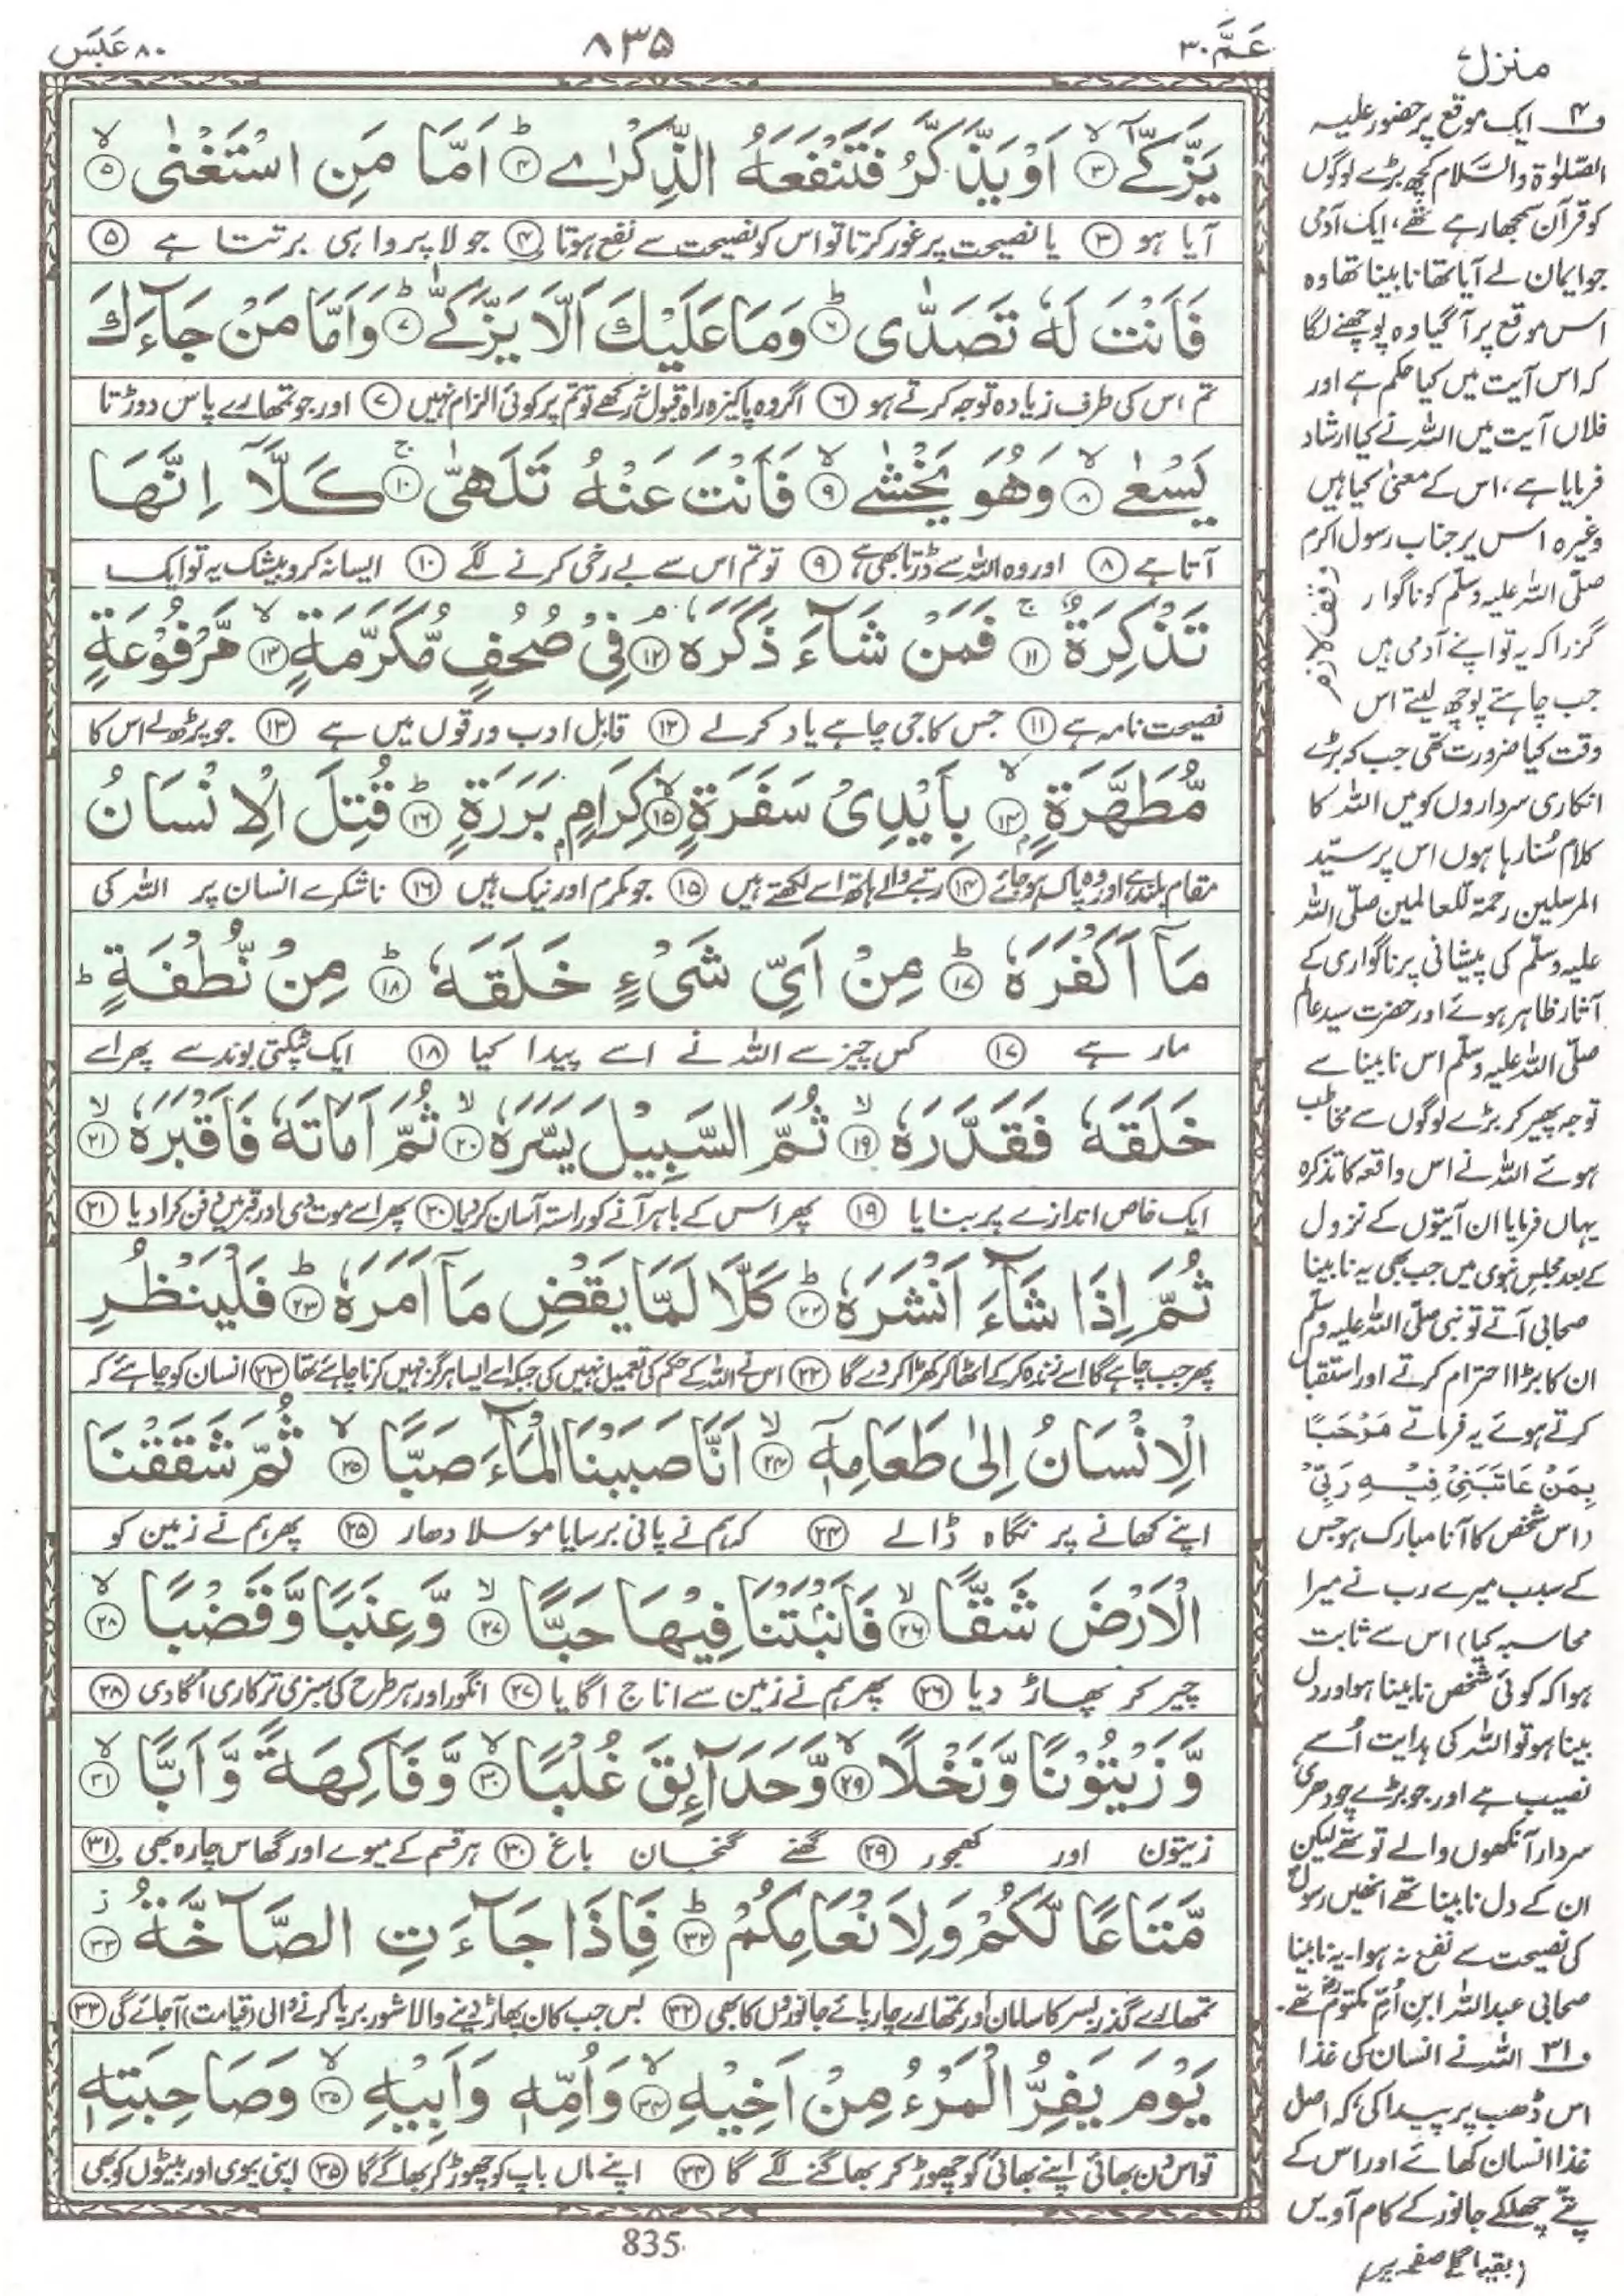 عَمَّ ٣٠
٨٣٥
٨٠ عَبَسَ
يَزَّكّٰۤىۙ ﴿٣﴾ اَوْ يَذَّكَّرُ فَتَنْفَعَهُ الذِّكْرٰىؕ ﴿٤﴾ اَمَّا مَنِ اسْتَغْنٰىۙ ﴿٥﴾
آیا ہو ﴿٣﴾ یا نصیحت پر غور کرتا تو اس کو نصیحت سے نفع ہوتا ﴿۴﴾ جو لا پرواہی برتتا ہے ﴿۵﴾
فَاَنْتَ لَهٗ تَصَدّٰىؕ ﴿٦﴾ وَمَا عَلَيْكَ اَلَّا يَزَّكّٰىؕ ﴿٧﴾ وَاَمَّا مَنْ جَآءَكَ
تم اس کی طرف زیادہ توجہ کرتے ہو ﴿۶﴾ اگر وہ پاکیزہ راہ قبول نہ رکھے تو تم پر کوئی الزام نہیں ﴿۷﴾ اور جو تمھارے پاس دوڑتا
يَسْعٰىۙ ﴿٨﴾ وَهُوَ يَخْشٰىۙ ﴿٩﴾ فَاَنْتَ عَنْهُ تَلَهّٰىۚ ﴿١٠﴾ كَلَّاۤ اِنَّهَا
آتا ہے ﴿۸﴾ اور وہ اللہ سے ڈرتا بھی ہے ﴿۹﴾ تو تم اس سے بے رخی کرنے لگے ﴿۱۰﴾ ایسا نہ کرو بیشک یہ تو ایک
تَذْكِرَةٌۚ ﴿١١﴾ فَمَنْ شَآءَ ذَكَرَهٗۘ ﴿١٢﴾ فِىْ صُحُفٍ مُّكَرَّمَةٍۙ ﴿١٣﴾ مَّرْفُوْعَةٍ
نصیحت نامہ ہے ﴿۱۱﴾ جس کا جی چاہے یاد کر لے ﴿۱۲﴾ قابل ادب ورقوں میں ہے ﴿۱۳﴾ جو پڑھ لے اس کا
مُّطَهَّرَةٍۭۙ ﴿١٤﴾ بِاَيْدِىْ سَفَرَةٍۙ ﴿١٥﴾ كِرَامٍۭ بَرَرَةٍؕ ﴿١٦﴾ قُتِلَ الْاِنْسَانُ
مقام بلند ہے اور وہ پاک ہو جائے ﴿۱۴﴾ رتبے والے ہاتھ اسے لکھتے ہیں ﴿۱۵﴾ جو مکرم اور نیک ہیں ﴿۱۶﴾ ناشکرے انسان پر اللہ کی
مَاۤ اَكْفَرَهٗؕ ﴿١٧﴾ مِنْ اَىِّ شَىْءٍ خَلَقَهٗؕ ﴿١٨﴾ مِنْ نُّطْفَةٍؕ
مار ہے ﴿۱۷﴾ کس چیز سے اللہ نے اسے پیدا کیا ﴿۱۸﴾ ایک ٹپکتی بوند سے پھر اسے
خَلَقَهٗ فَقَدَّرَهٗۙ ﴿١٩﴾ ثُمَّ السَّبِيْلَ يَسَّرَهٗۙ ﴿٢٠﴾ ثُمَّ اَمَاتَهٗ فَاَقْبَرَهٗۙ ﴿٢١﴾
ایک خاص اندازے پر بنایا ﴿۱۹﴾ پھر اس کے باہر آنے کو راستہ آسان کر دیا ﴿۲۰﴾ پھر اسے موت دی اور قبر میں دفن کرا دیا ﴿۲۱﴾
ثُمَّ اِذَا شَآءَ اَنْشَرَهٗؕ ﴿٢٢﴾ كَلَّا لَمَّا يَقْضِ مَاۤ اَمَرَهٗؕ ﴿٢٣﴾ فَلْيَنْظُرِ
پھر جب چاہے گا اسے زندہ کر کے اٹھا کر کھڑا کر دے گا ﴿۲۲﴾ اس نے اللہ کے حکم کی تعمیل نہیں کی جبکہ اسے ایسا ہرگز نہیں کرنا چاہئے تھا ﴿۲۳﴾ انسان کو چاہئے کہ
الْاِنْسَانُ اِلٰى طَعَامِهٖۤۙ ﴿٢٤﴾ اَنَّا صَبَبْنَا الْمَآءَ صَبًّاۙ ﴿٢٥﴾ ثُمَّ شَقَقْنَا
اپنے کھانے پر نگاہ ڈالے ﴿۲۴﴾ کہ ہم نے پانی برسایا موسلا دھار ﴿۲۵﴾ پھر ہم نے زمین کو
الْاَرْضَ شَقًّاۙ ﴿٢٦﴾ فَاَنْۢبَتْنَا فِيْهَا حَبًّاۙ ﴿٢٧﴾ وَّعِنَبًا وَّقَضْبًاۙ ﴿٢٨﴾
چیر کر پھاڑ دیا ﴿۲۶﴾ پھر ہم نے زمین سے اناج اگایا ﴿۲۷﴾ انگور اور ہر طرح کی سبزی ترکاری اگا دی ﴿۲۸﴾
وَّزَيْتُوْنًا وَّنَخْلًاۙ ﴿٢٩﴾ وَّحَدَآئِقَ غُلْبًاۙ ﴿٣٠﴾ وَّفَاكِهَةً وَّاَبًّاۙ ﴿٣١﴾
زیتون اور کھجور ﴿۲۹﴾ گھنے گنجان باغ ﴿۳۰﴾ ہر قسم کے میوے اور گھاس چارہ بھی ﴿۳۱﴾
مَّتَاعًا لَّكُمْ وَلِاَنْعَامِكُمْؕ ﴿٣٢﴾ فَاِذَا جَآءَتِ الصَّآخَّةُؗ ﴿٣٣﴾
تمھارے گذر بسر کا سامان اور تمھارے چار پائے جانوروں کا بھی ﴿۳۲﴾ بس جب کان پھاڑ دینے والا شور برپا کرنے والی (قیامت) آجائے گی ﴿۳۳﴾
يَوْمَ يَفِرُّ الْمَرْءُ مِنْ اَخِيْهِۙ ﴿٣٤﴾ وَاُمِّهٖ وَاَبِيْهِۙ ﴿٣٥﴾ وَصَاحِبَتِهٖ
تو اس دن بھائی اپنے بھائی کو چھوڑ کر بھاگنے لگے گا ﴿۳۴﴾ اپنے ماں باپ کو چھوڑ کر بھاگے گا ﴿۳۵﴾ اپنی بیوی اور بیٹوں کو بھی
835
منزل ۷
ف۴ ایک موقع پر حضور علیہ
الصّلوٰۃ والسّلام کچھ بڑے لوگوں
کو قرآن سمجھا رہے تھے، ایک آدمی
جو ایمان لے آیا تھا نابینا تھا وہ
اس موقع پر آگیا وہ پوچھنے لگا
کہ اس آیت میں کیا حکم ہے اور
فلاں آیت میں اللہ نے کیا ارشاد
فرمایا ہے، اس کے معنیٰ کیا ہیں
وغیرہ اس پر جناب رسول اکرم
صلّی اللہ علیہ وسلّم کو ناگوار
گزرا کہ یہ تو اپنے آدمی ہیں
جب چاہتے پوچھ لیتے اس
وقف لازم
وقت کیا ضرورت تھی جب کہ بڑے
انکاری سرداروں کو میں اللہ کا
کلام سُنا رہا ہوں اس پر سیّد
المرسلین رحمۃ للعالمین صلّی اللہ
علیہ وسلّم کی پیشانی پر ناگواری کے
آثار ظاہر ہوئے اور حضرت سید عالم
صلّی اللہ علیہ وسلّم اس نابینا سے
توجہ پھیر کر بڑے لوگوں سے مخاطب
ہوئے اللہ نے اس واقعہ کا تذکرہ
یہاں فرمایا ان آیتوں کے نزول
کے بعد مجلس نبوی میں جب بھی یہ نابینا
صحابی آتے تو نبی صلّی اللہ علیہ وسلّم
ان کا بڑا احترام کرتے اور استقبال
کرتے ہوئے یہ فرماتے مَرْحَبًا
بِمَنْ عَاتَبَنِىْ فِيْهِ رَبِّىْ
(اس شخص کا آنا مبارک ہو جس
کے سبب میرے رب نے میرا
محاسبہ کیا) اس سے ثابت
ہوا کہ کوئی شخص نابینا ہو اور دل
بینا ہو تو اللہ کی ہدایت اُسے
نصیب ہے اور جو بڑے چودھری
سردار آنکھوں والے تو تھے لیکن
ان کے دل نابینا تھے انھیں رسولؐ
کی نصیحت سے نفع نہ ہوا۔ یہ نابینا
صحابی عبداللہ ابن اُمِّ مکتومؓ تھے۔
ف۳۱ اللہ نے انسان کی غذا
اس ڈھب پر پیدا کی کہ اصل
غذا انسان کھائے اور اس کے
پتّے چھلکے جانور کے کام آویں
(بقیہ اگلے صفحہ پر)